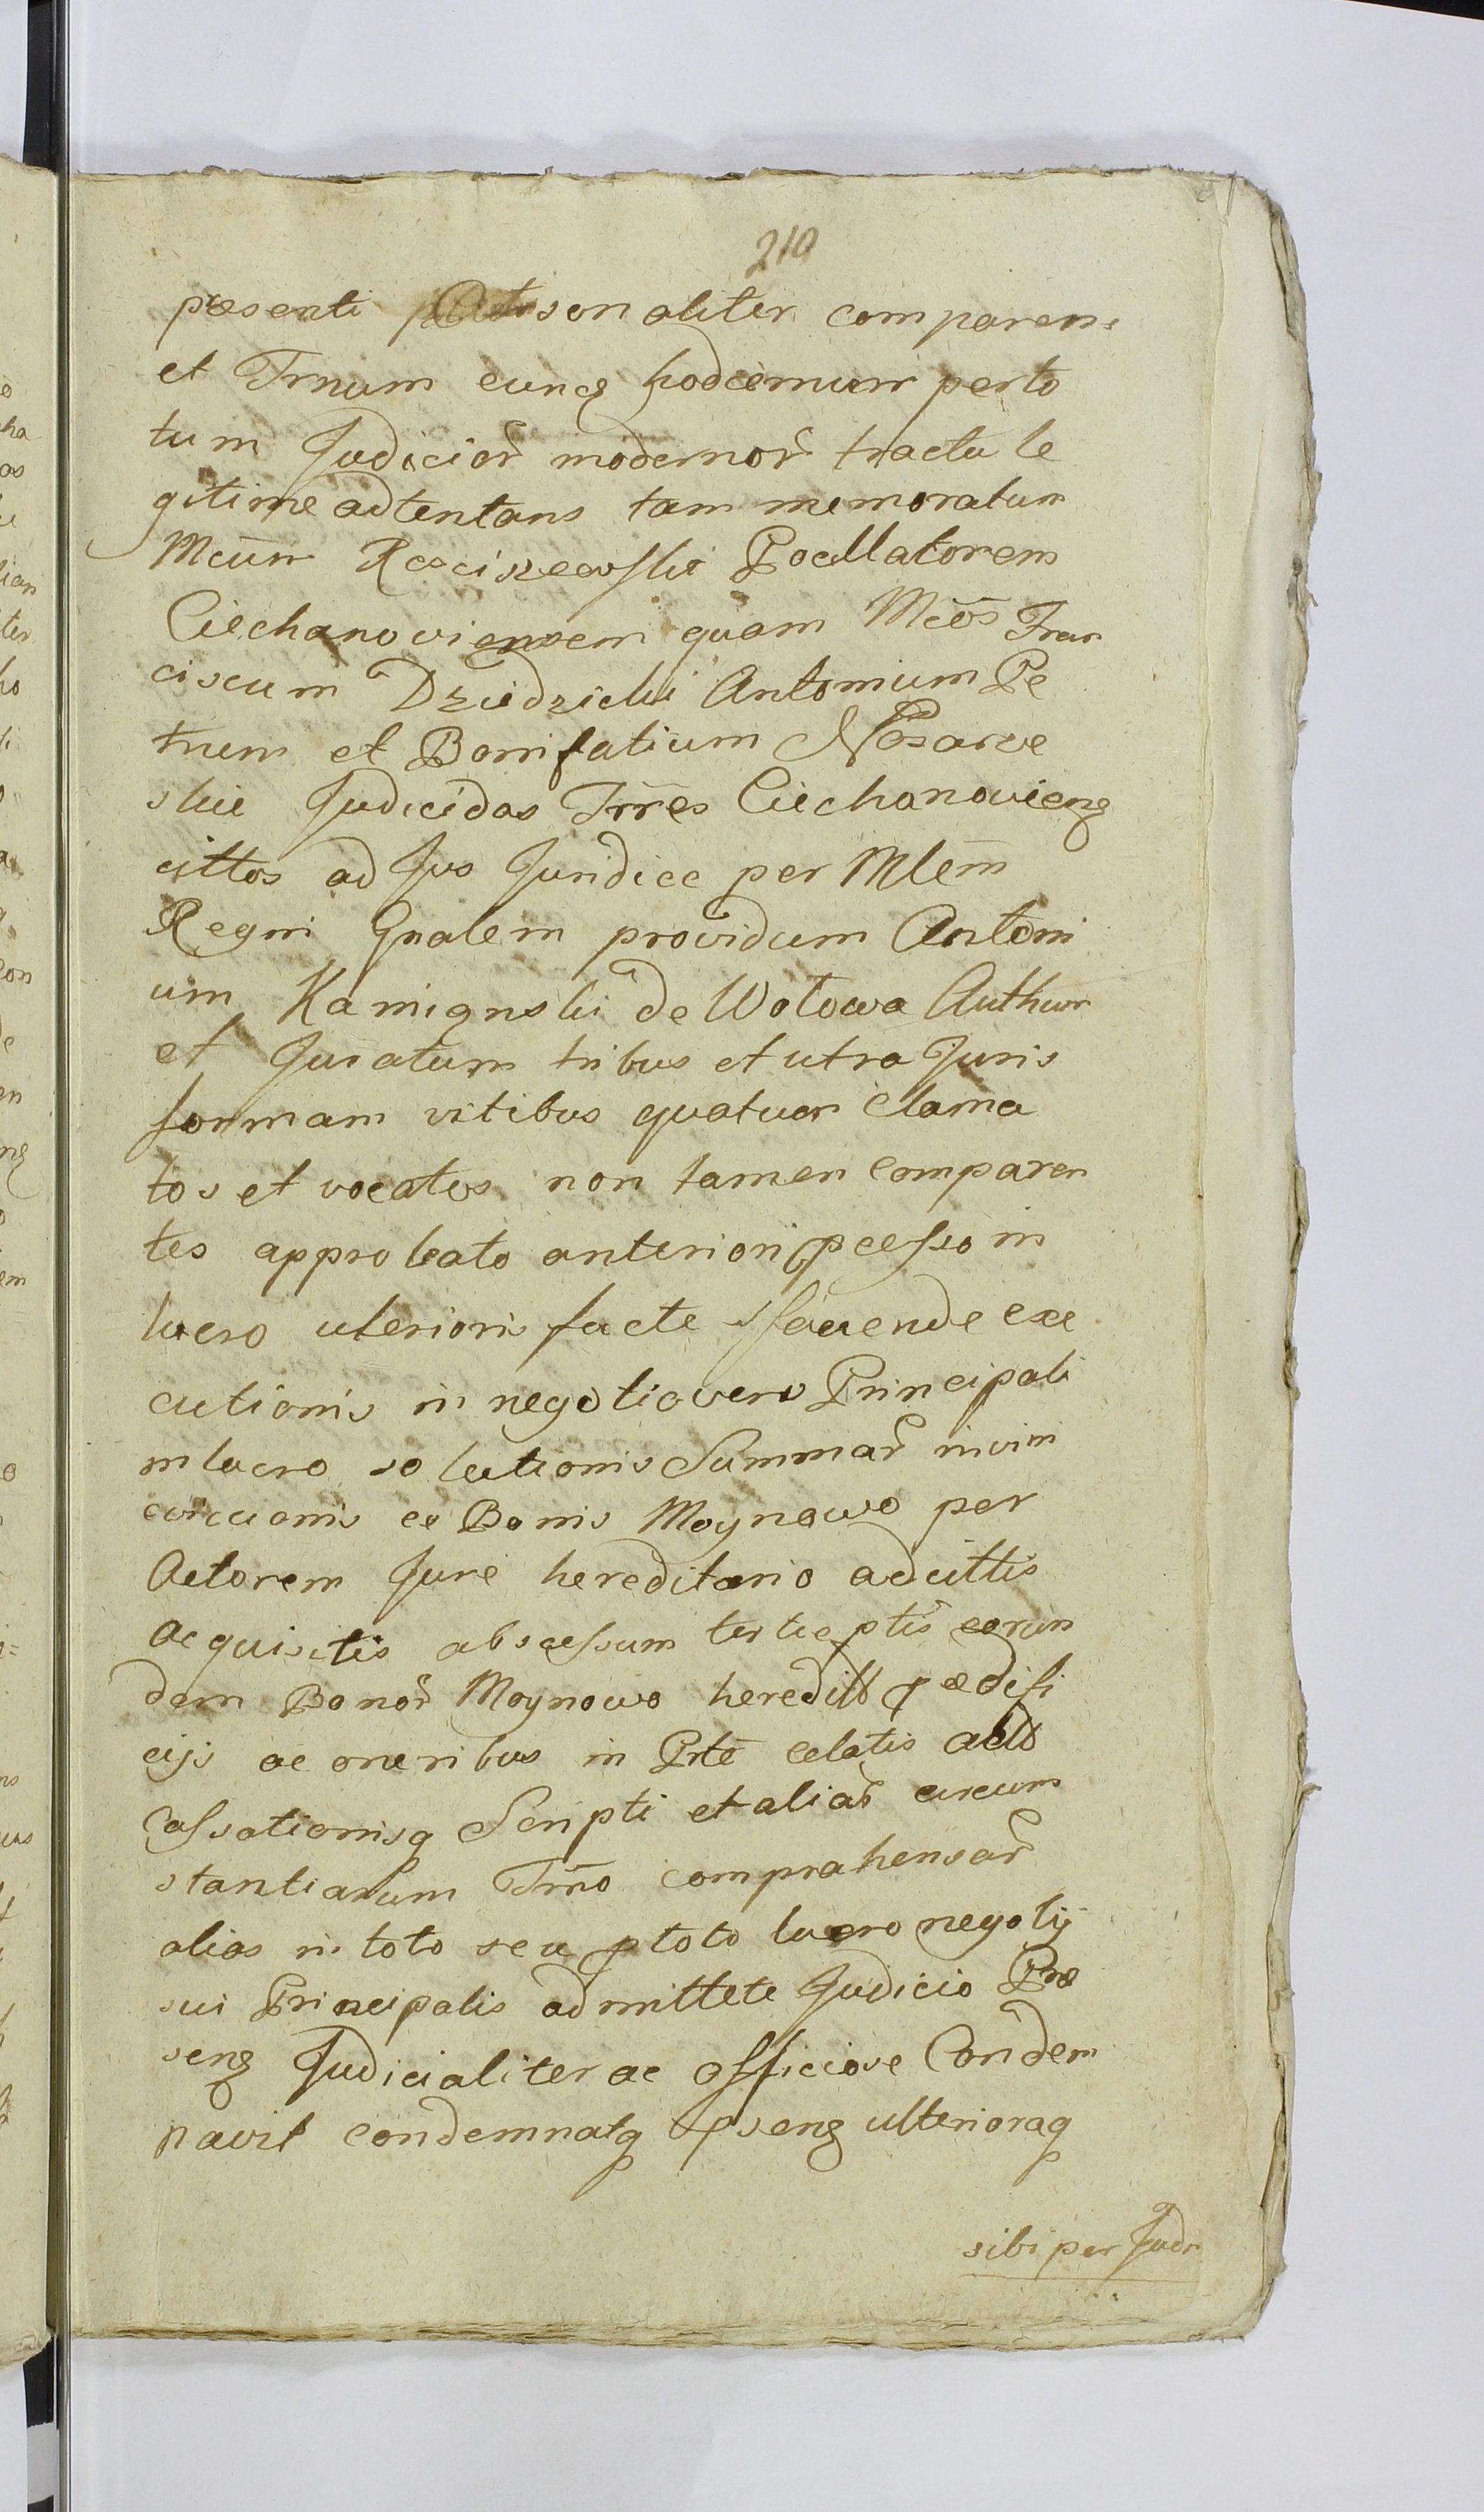 210
præsenti personaliter comparens
et Trnum eunq hodiernum perto
tum Judicior modernor tractu le
gitime adtentans tam memoratum
Mcum Rosciszewski Pocillatorem
Ciechanoviensem quam Mcos Fran
ciscum Dziedzicki Antonium Pe
trum et Bonifatium Nosarze
skie Judicidas Trres Ciechanovieng
cittos ad Jus Juridice per Mlem
Regni Gnalem providum Antoni
um Kamignski de Wolowa Authum
et Juratum tribus et utra Juris
formam vitibus quatuor clama
tos et vocatos non tamen comparen
tes approbato anteriori pcesso in
lucro ulterioris facte faciende exe
cutionis in negotio vero Principali
in lucro solutionis Summar in vim
eviccionis ex Bonis Moynowo per
Actorem Jure hereditario adcittis
acquisitis abscessum tertie ptis eorun
dem Bonor Moynowo hereditt p ædifi
cijs ac oneribus in Prte celatis
Cassationisq Scripti et aliar circum
stantiarum Trno comprahensar
alias in toto seu p toto lucro negotij
sui Principalis admittete Judicio Præ
seng Judicialiter ac officiose Condem
navit condemnatq pseng ulterioraq
sibi per Judi